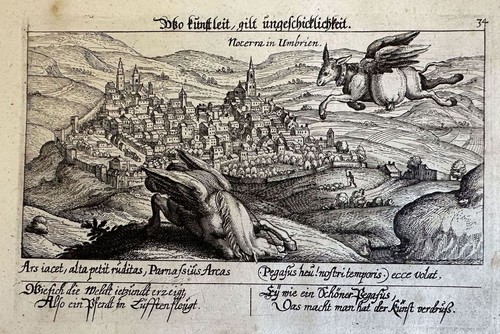 Wo künst leit, gilt ungeschicklichkeit.
34
Nocerra in Umbrien.
Ars iacet, alta petit ruditas, Parnassius Arcas
(Pegasus heu! nostri temporis) ecce volat.
Wie sich die Weldt ietzundt erzeigt,
Ey wie ein Schöner Pegasus
Also ein Pferdt in Lüfften fleugt.
Das macht man hat der Künst verdruß.